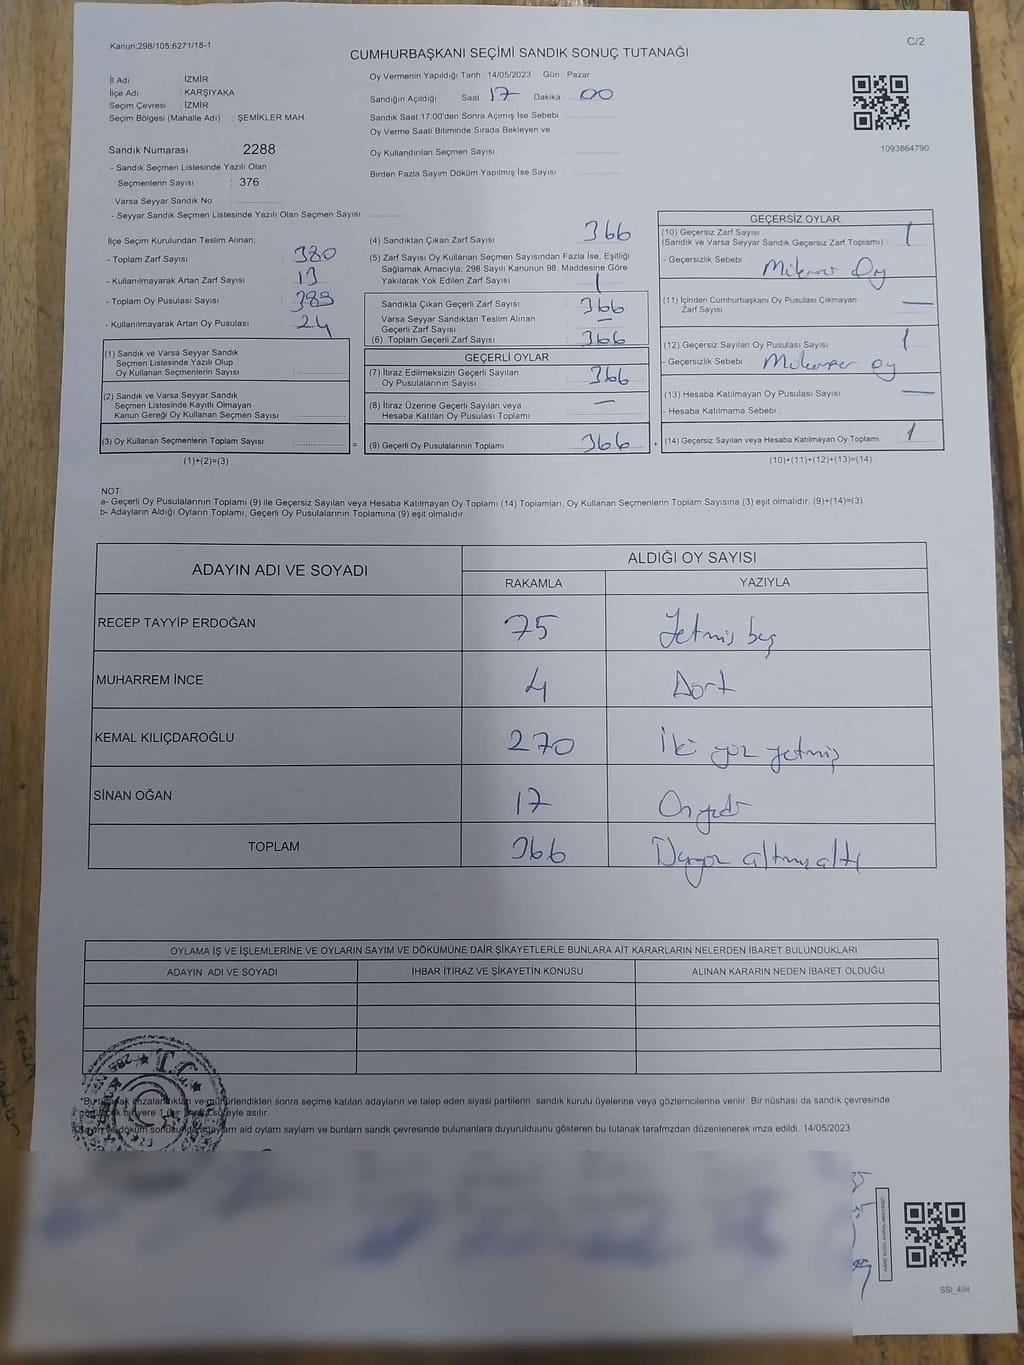 Kanun:298/105;6271/18-1
C/2
CUMHURBAŞKANI SEÇİMİ SANDIK SONUÇ TUTANAĞI
İl Adı : İZMİR
İlçe Adı : KARŞIYAKA
Seçim Çevresi : İZMİR
Seçim Bölgesi (Mahalle Adı) : ŞEMİKLER MAH.
Sandık Numarası : 2288
- Sandık Seçmen Listesinde Yazılı Olan
Seçmenlerin Sayısı : 376
Varsa Seyyar Sandık No :
- Seyyar Sandık Seçmen Listesinde Yazılı Olan Seçmen Sayısı
Oy Vermenin Yapıldığı Tarih : 14/05/2023 Gün : Pazar
Sandığın Açıldığı Saat 17 Dakika 00
Sandık Saat 17:00'den Sonra Açımış İse Sebebi
Oy Verme Saati Bitiminde Sırada Bekleyen ve
Oy Kullandırılan Seçmen Sayısı
Birden Fazla Sayım Döküm Yapılmış İse Sayısı
1093864790
İlçe Seçim Kurulundan Teslim Alınan;
- Toplam Zarf Sayısı : 380
- Kullanılmayarak Artan Zarf Sayısı : 13
- Toplam Oy Pusulası Sayısı : 389
- Kullanılmayarak Artan Oy Pusulası : 24
(1) Sandık ve Varsa Seyyar Sandık
Seçmen Listesinde Yazılı Olup
Oy Kullanan Seçmenlerin Sayısı :
(2) Sandık ve Varsa Seyyar Sandık
Seçmen Listesinde Kayıtlı Olmayan
Kanun Gereği Oy Kullanan Seçmen Sayısı :
(3) Oy Kullanan Seçmenlerin Toplam Sayısı :
(1)+(2)=(3)
=
(4) Sandıktan Çıkan Zarf Sayısı 366
(5) Zarf Sayısı Oy Kullanan Seçmen Sayısından Fazla İse, Eşitliği
Sağlamak Amacıyla; 298 Sayılı Kanunun 98. Maddesine Göre
Yakılarak Yok Edilen Zarf Sayısı : 1
Sandıkta Çıkan Geçerli Zarf Sayısı : 366
Varsa Seyyar Sandıktan Teslim Alınan
Geçerli Zarf Sayısı : —
(6) Toplam Geçerli Zarf Sayısı : 366
GEÇERLİ OYLAR
(7) İtiraz Edilmeksizin Geçerli Sayılan
Oy Pusulalarının Sayısı : 366
(8) İtiraz Üzerine Geçerli Sayılan veya
Hesaba Katılan Oy Pusulası Toplamı : —
(9) Geçerli Oy Pusulalarının Toplamı : 366
+
GEÇERSİZ OYLAR
(10) Geçersiz Zarf Sayısı
(Sandık ve Varsa Seyyar Sandık Geçersiz Zarf Toplamı) : 1
- Geçersizlik Sebebi : Oy
(11) İçinden Cumhurbaşkanı Oy Pusulası Çıkmayan
Zarf Sayısı : —
(12) Geçersiz Sayılan Oy Pusulası Sayısı : 1
- Geçersizlik Sebebi : oy
(13) Hesaba Katılmayan Oy Pusulası Sayısı : —
- Hesaba Katılmama Sebebi :
(14) Geçersiz Sayılan veya Hesaba Katılmayan Oy Toplamı : 1
(10)+(11)+(12)+(13)=(14)
NOT:
a- Geçerli Oy Pusulalarının Toplamı (9) ile Geçersiz Sayılan veya Hesaba Katılmayan Oy Toplamı (14) Toplamları, Oy Kullanan Seçmenlerin Toplam Sayısına (3) eşit olmalıdır. (9)+(14)=(3)
b- Adayların Aldığı Oyların Toplamı, Geçerli Oy Pusulalarının Toplamına (9) eşit olmalıdır.
ADAYIN ADI VE SOYADI
ALDIĞI OY SAYISI
RAKAMLA YAZIYLA
RECEP TAYYİP ERDOĞAN 75 Yetmiş beş
MUHARREM İNCE 4 Dört
KEMAL KILIÇDAROĞLU 270 İki yüz yetmiş
SİNAN OĞAN 17 Onyedi
TOPLAM 366 Üçyüz altmış altı
OYLAMA İŞ VE İŞLEMLERİNE VE OYLARIN SAYIM VE DÖKÜMÜNE DAİR ŞİKAYETLERLE BUNLARA AİT KARARLARIN NELERDEN İBARET BULUNDUKLARI
ADAYIN ADI VE SOYADI İHBAR İTİRAZ VE ŞİKAYETİN KONUSU ALINAN KARARIN NEDEN İBARET OLDUĞU
*Bu tutanak imzalandıktan ve mühürlendikten sonra seçime katılan adayların ve talep eden siyasi partilerin sandık kurulu üyelerine veya gözlemcilerine verilir. Bir nüshası da sandık çevresinde
görülecek bir yere 1 süreyle asılır.
döküm sonucunda adayların ald oyların sayların ve bunların sandk çevresinde bulunanlara duyurulduunu gösteren bu tutanak tarafmzdan düzenlenerek imza edildi. 14/05/2023
T.C.
SSI_404